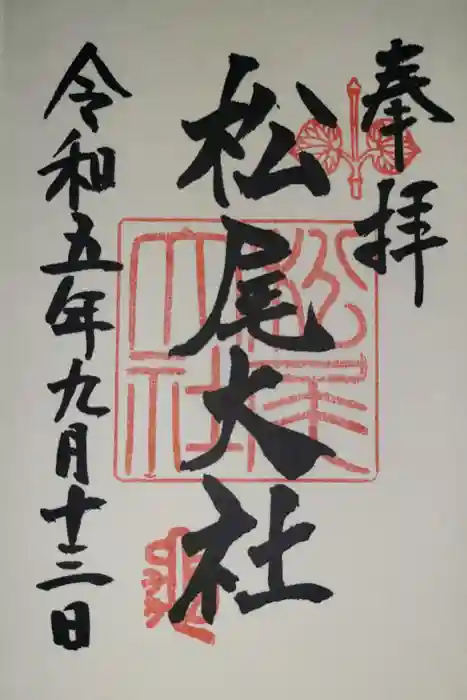 奉拝
松尾大社
松尾大社
令和五年九月十三日